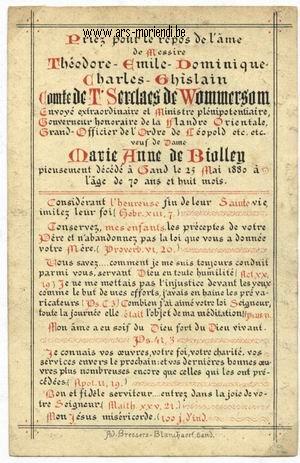 www.ars-moriendi.be
Priez pour le repos de l'âme
de Messire
Théodore-Emile-Dominique-
Charles-Ghislain
Comte de T'Serclaes de Wommersom
Envoyé extraordinaire et Ministre plénipotentiaire,
Gouverneur honoraire de la Flandre Orientale,
Grand-Officier de l'Ordre de Léopold etc. etc.
veuf de Dame
Marie Anne de Biolley
pieusement décédé à Gand le 25 Mai 1880 à
l'âge de 70 ans et huit mois.
Considérant l'heureuse fin de leur Sainte vie,
imitez leur foi (Hebr. XIII, 7.)
Conservez, mes enfants, les préceptes de votre
Père et n'abandonnez pas la loi que vous a donnée
votre Mère. (Proverb. VI, 20)
Vous savez.... comment je me suis toujours conduit
parmi vous, servant Dieu en toute humilité (Act. XX,
19) Je ne me mettais pas l'injustice devant les yeux
comme le but de mes efforts, j'avais en haine les préva-
ricateurs (Ps. C. 3) Combien j'ai aimé votre loi Seigneur,
toute la journée elle était l'objet de ma méditation!
Mon âme a eu soif du Dieu fort du Dieu vivant.
Ps. 41, 3
Je connais vos œuvres, votre foi, votre charité, vos
services envers le prochain: et vos dernières bonnes œuv
res plus nombreuses encore que celles qui les ont pré-
cédées (Apoc. II, 19.)
Bon et fidèle serviteur... entrez dans la joie de vo-
tre Seigneur (Matth. XXV, 21.)
Mon Jésus miséricorde. (100 j. d'ind.)
Ad. Bressers-Blanchaert, Gand.